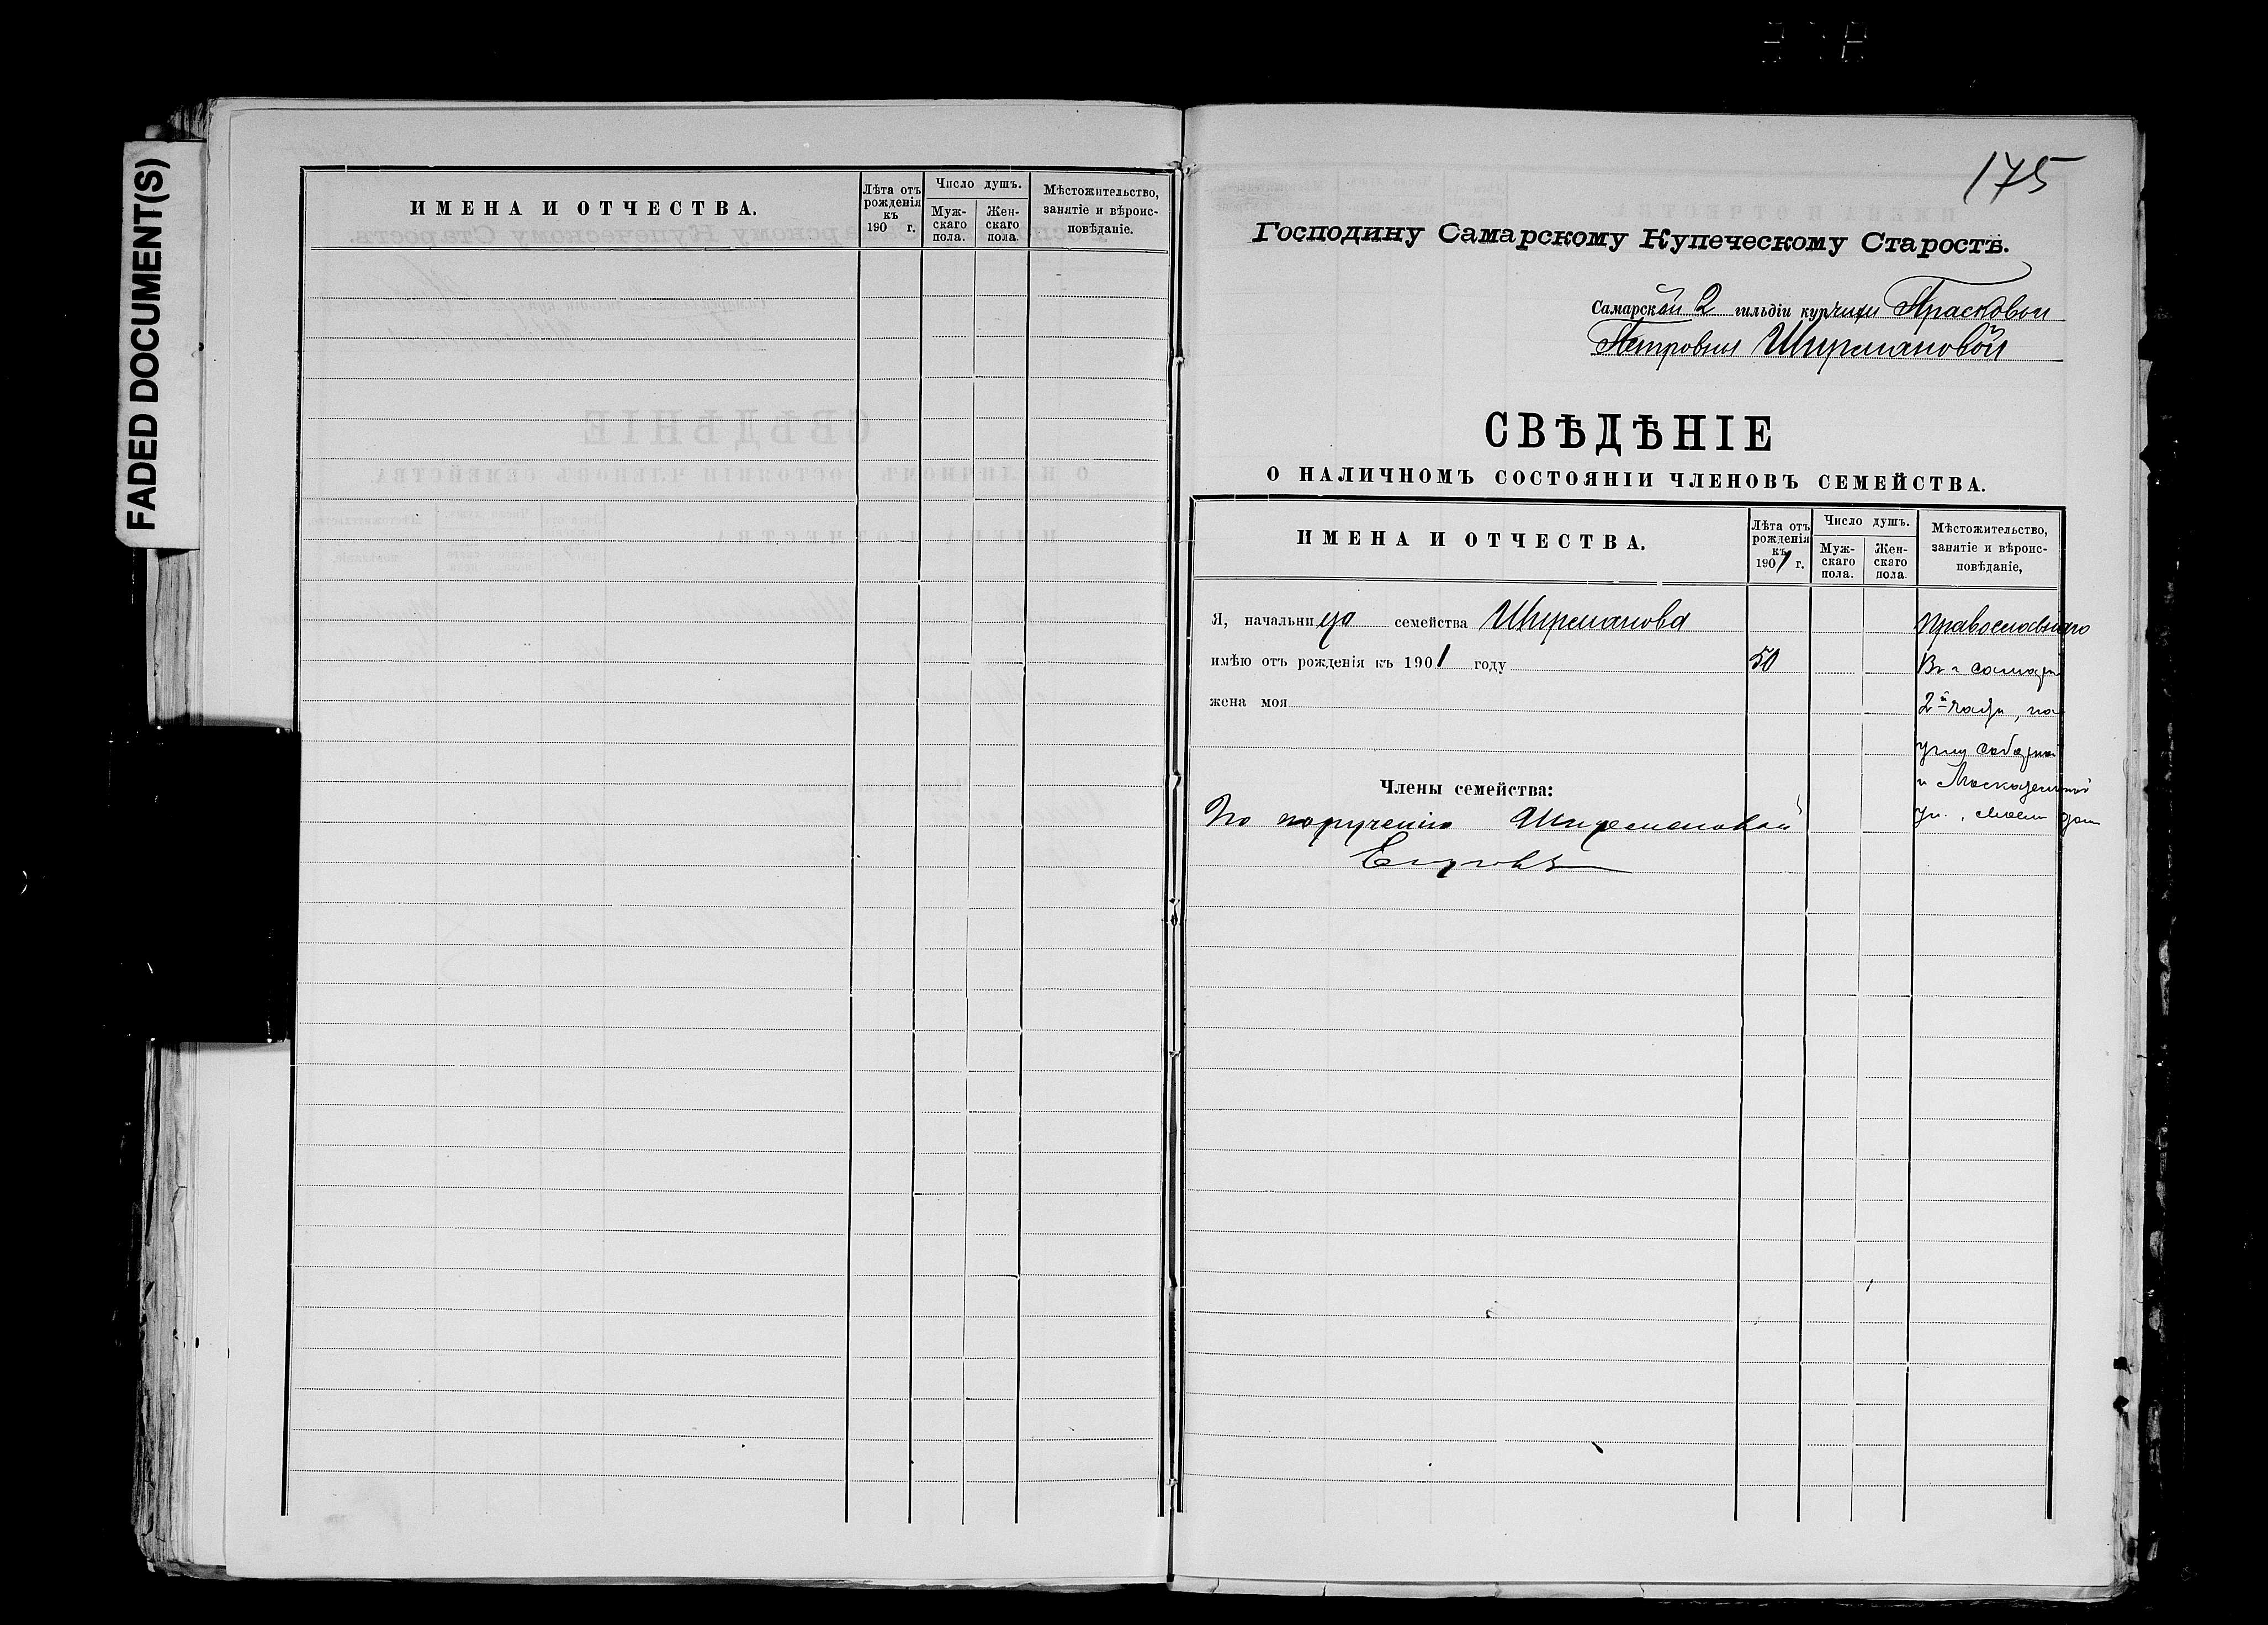 FADED DOCUMENT(S)
ИМЕНА И ОТЧЕСТВА.
Лѣта отъ рожденія къ 190 г.
Число душъ.
Муж-скаго пола.
Жен-скаго пола.
Мѣстожительство, занятіе и вѣроис-повѣданіе.
175
Господину Самарскому Купеческому Старостѣ.
Самарской 2 гильдіи купчихи Прасковьи
Петровны
СВѢДѢНІЕ
О НАЛИЧНОМЪ СОСТОЯНІИ ЧЛЕНОВЪ СЕМЕЙСТВА.
ИМЕНА И ОТЧЕСТВА.
Лѣта отъ рожденія къ 1901 г.
Число душъ.
Муж-скаго пола.
Жен-скаго пола.
Мѣстожительство, занятіе и вѣроис-повѣданіе,
Я, начальница семейства
Православнаго
имѣю отъ рожденія къ 1901 году 50
Въ г Самарѣ
жена моя
2й части, на
углу Соборной
Члены семейства:
и
По порученію
ул.